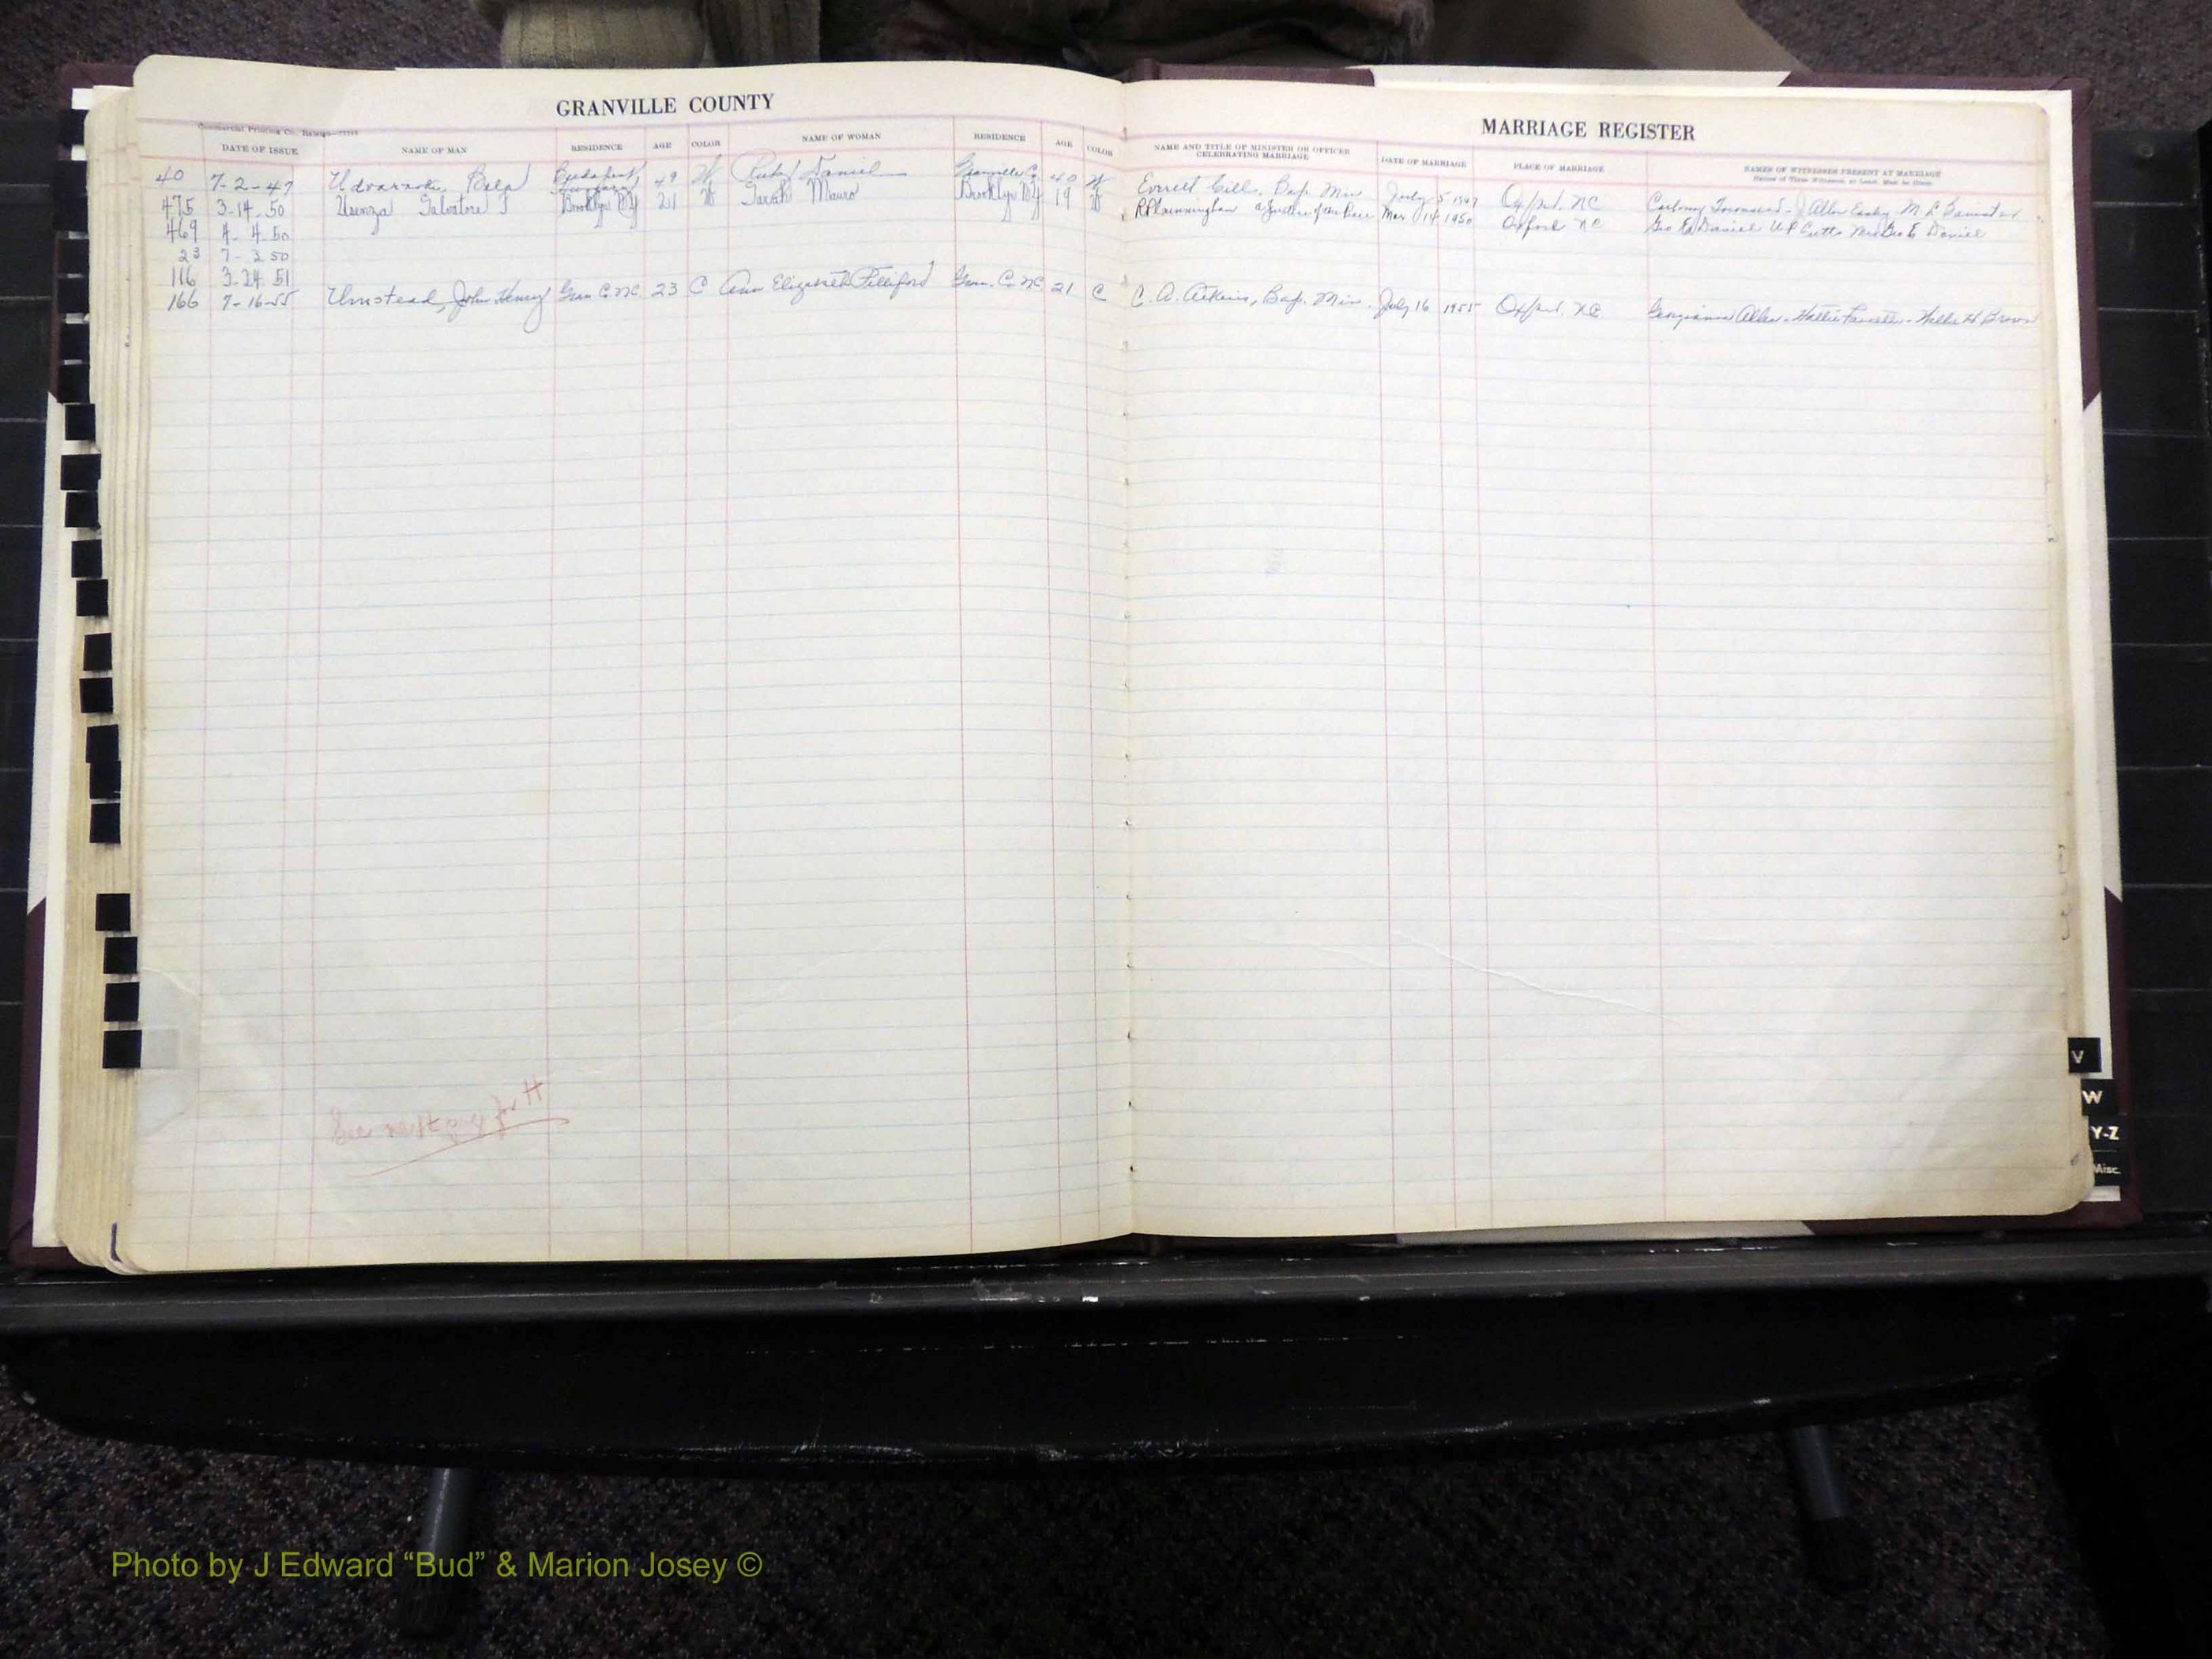 GRANVILLE COUNTY
MARRIAGE REGISTER
Commercial Printing Co., Raleigh
DATE OF ISSUE NAME OF MAN RESIDENCE AGE COLOR NAME OF WOMAN RESIDENCE AGE COLOR
NAME AND TITLE OF MINISTER OR OFFICER CELEBRATING MARRIAGE DATE OF MARRIAGE PLACE OF MARRIAGE NAMES OF WITNESSES PRESENT AT MARRIAGE
Names of Three Witnesses, at Least, Must be Given
40 7-2-47 Bela Budapest, Hungary 49 W Ruby Daniel Granville Co. 40 W Everett Gill, Bap. Min July 5 1947 Oxford, NC
475 3-14-50 Usenza Salvatore J Brooklyn NY 21 W Sarah Mauro Brooklyn NY 19 W a Justice of the Peace Mar 14 1950 Oxford NC Geo E Daniel Mrs Geo E Daniel
469 4-4-50
23 7-3 50
116 3-24 51
166 7-16-55 Umstead, John Henry Gran. C. NC 23 C Ann Elizabeth Gran. C. NC 21 C C. A. Atkins, Bap. Min. July 16 1955 Oxford, NC Georgianna Allen - Hattie - Willie H Brown
See next page for H
V
W
Y-Z
Misc.
Photo by J Edward “Bud” & Marion Josey ©